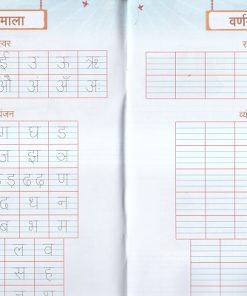 माला
स्वर
ई उ ऊ ऋ
ओ अं अँ अः
ंजन
ग घ ड
ज झ ञ
ड़ ढ ढ़ ण
द ध न
ब भ म
ल व
स ह
वर्ण
स
व्य